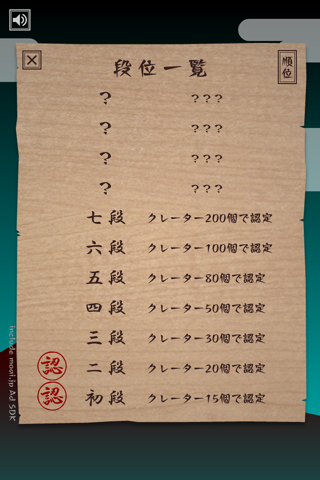 段位一覧
順位
? ???
? ???
? ???
? ???
七段 クレーター200個で認定
六段 クレーター100個で認定
五段 クレーター80個で認定
四段 クレーター50個で認定
三段 クレーター30個で認定
認 二段 クレーター20個で認定
認 初段 クレーター15個で認定
include mooi.jp Ad SDK